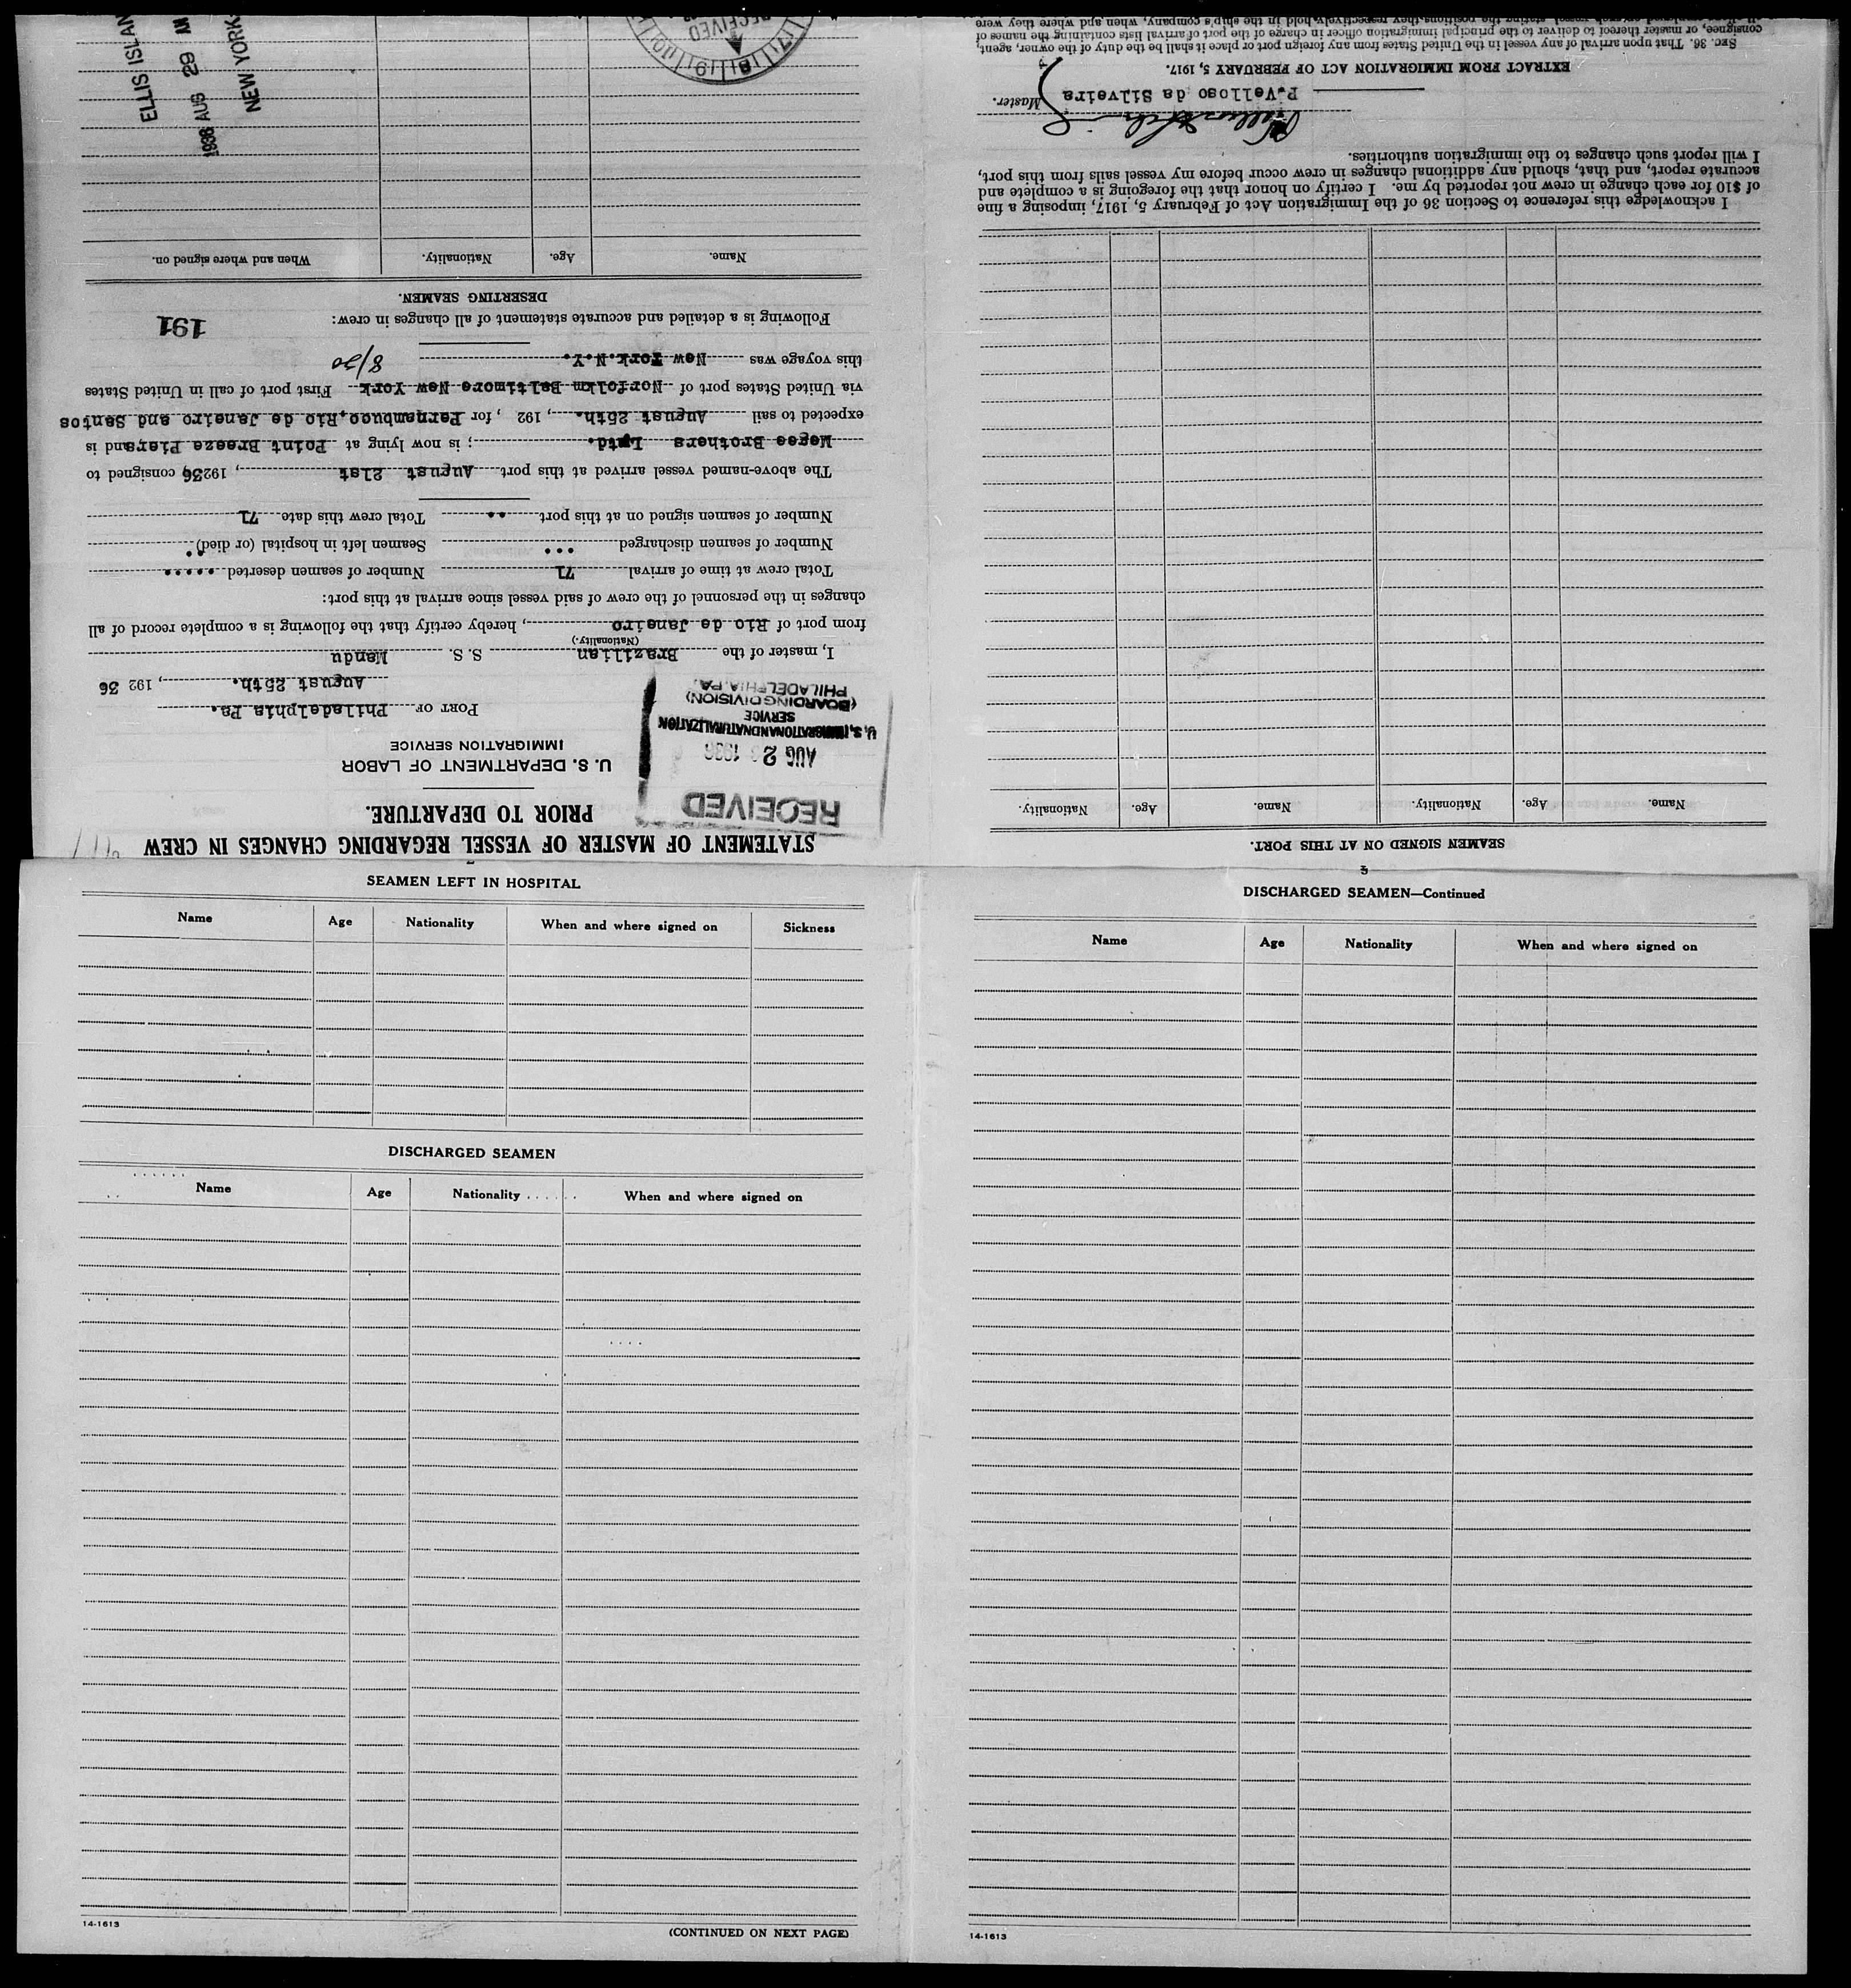 STATEMENT OF MASTER OF VESSEL REGARDING CHANGES IN CREW
PRIOR TO DEPARTURE.
U. S. DEPARTMENT OF LABOR
IMMIGRATION SERVICE
RECEIVED
AUG 2 1936
U. S. IMMIGRATION AND NATURALIZATION
SERVICE
(BOARDING DIVISION)
PHILADELPHIA, PA.
PORT OF Philadelphia Pa.
August 25th. , 192 36
I, master of the Brazilian S. S. Mandu
(Nationality.)
from port of Rio de Janeiro , hereby certify that the following is a complete record of all
changes in the personnel of the crew of said vessel since arrival at this port:
Total crew at time of arrival 71 Number of seamen deserted .....
Number of seamen discharged ... Seamen left in hospital (or died) ..
Number of seamen signed on at this port .. Total crew this date 71
The above-named vessel arrived at this port August 21st , 19236 consigned to
Megee Brothers Lmtd. ; is now lying at Point Breeze Piers and is
expected to sail August 25th. , 192 , for Pernambuco,Rio de Janeiro and Santos
via United States port of Norfolkm Baltimore New York First port of call in United States
this voyage was New York.N.Y. 8/20
Following is a detailed and accurate statement of all changes in crew:
191
DESERTING SEAMEN.
Name. Age. Nationality. When and where signed on.
RECEIVED
ELLIS ISLAN
1936 AUG 29 AM
NEW YORK
SEAMEN SIGNED ON AT THIS PORT.
Name. Age. Nationality. Name. Age. Nationality.
I acknowledge this reference to Section 36 of the Immigration Act of February 5, 1917, imposing a fine
of $10 for each change in crew not reported by me. I certify on honor that the foregoing is a complete and
accurate report, and that, should any additional changes in crew occur before my vessel sails from this port,
I will report such changes to the immigration authorities.
P.Velloso da Silveira Master.
EXTRACT FROM IMMIGRATION ACT OF FEBRUARY 5, 1917.
SEC. 36. That upon arrival of any vessel in the United States from any foreign port or place it shall be the duty of the owner, agent,
consignee, or master thereof to deliver to the principal immigration officer in charge of the port of arrival lists containing the names of
all aliens employed on such vessel, stating the positions they respectively hold in the ship's company, when and where they were
SEAMEN LEFT IN HOSPITAL
Name Age Nationality When and where signed on Sickness
DISCHARGED SEAMEN
Name Age Nationality When and where signed on
14-1613
(CONTINUED ON NEXT PAGE)
3
DISCHARGED SEAMEN—Continued
Name Age Nationality When and where signed on
14-1613